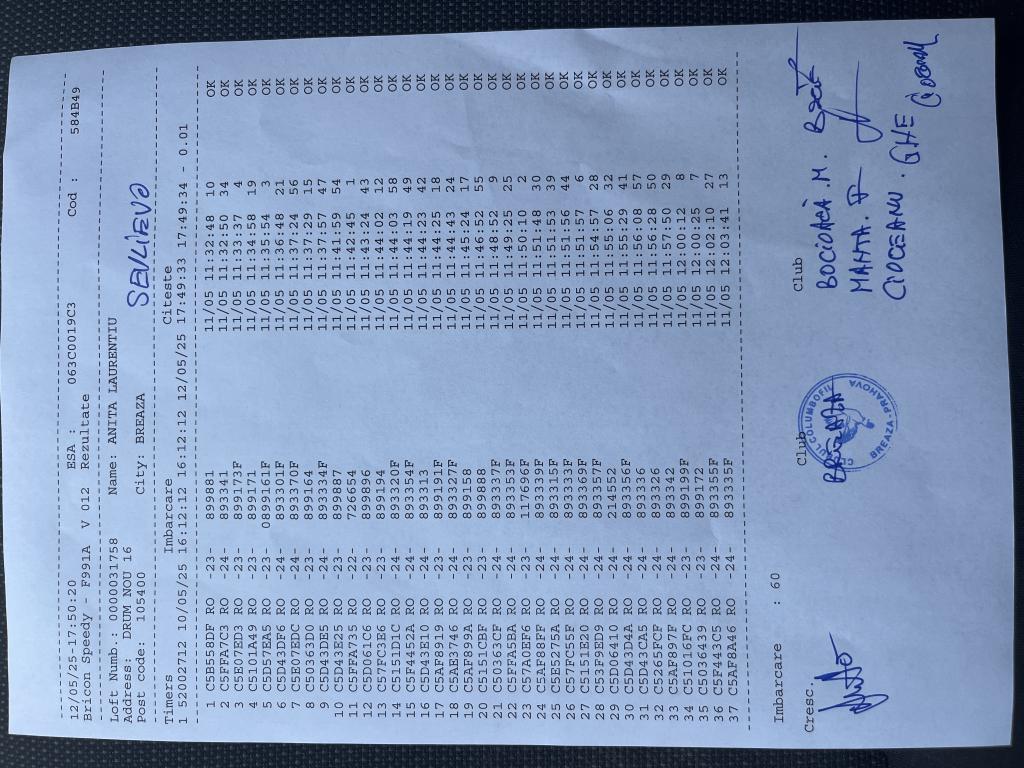 ------------------------------------------------------------
12/05/25-17:50:20 ESA : 063C0019C3 Cod : 584B49
Bricon Speedy - F991A V 012 Rezultate
------------------------------------------------------------
Loft Numb.: 0000031758 Name: ANITA LAURENTIU
Address: DRUM NOU 16 SEVLIEVO
Post code: 105400 City: BREAZA
------------------------------------------------------------
Timers Imbarcare Citeste
1 52002712 10/05/25 16:12:12 16:12:12 12/05/25 17:49:33 17:49:34 - 0.01
------------------------------------------------------------
1 C5B558DF RO -23- 899881 11/05 11:32:48 10 OK
2 C5FFA7C3 RO -24- 893341 11/05 11:32:50 34 OK
3 C5E07ED3 RO -23- 899173F 11/05 11:33:37 4 OK
4 C5101A49 RO -23- 899171 11/05 11:34:58 19 OK
5 C5D57EA5 RO -23- 0899161F 11/05 11:35:54 3 OK
6 C5D43DF6 RO -24- 893301F 11/05 11:36:48 21 OK
7 C5E07EDC RO -24- 893370F 11/05 11:37:24 56 OK
8 C50363D0 RO -23- 899164 11/05 11:37:29 15 OK
9 C5D43DE5 RO -24- 893334F 11/05 11:37:57 47 OK
10 C5D43E25 RO -23- 899887 11/05 11:41:59 54 OK
11 C5FFA735 RO -22- 726654 11/05 11:42:45 1 OK
12 C5D061C6 RO -23- 899896 11/05 11:43:24 43 OK
13 C57FC3E6 RO -23- 899194 11/05 11:44:02 12 OK
14 C5151D1C RO -24- 893320F 11/05 11:44:03 58 OK
15 C5F4452A RO -24- 893354F 11/05 11:44:19 49 OK
16 C5D43E10 RO -24- 893313 11/05 11:44:23 42 OK
17 C5AF8919 RO -23- 899191F 11/05 11:44:25 18 OK
18 C5AE3746 RO -24- 893327F 11/05 11:44:43 24 OK
19 C5AF899A RO -23- 899158 11/05 11:45:24 17 OK
20 C5151CBF RO -23- 899888 11/05 11:46:52 55 OK
21 C50363CF RO -24- 893337F 11/05 11:48:52 9 OK
22 C5FFA5BA RO -24- 893353F 11/05 11:49:25 25 OK
23 C57A0EF6 RO -23- 117696F 11/05 11:50:10 2 OK
24 C5AF88FF RO -24- 893339F 11/05 11:51:48 30 OK
25 C5E5275A RO -24- 893315F 11/05 11:51:53 39 OK
26 C57FC55F RO -24- 893333F 11/05 11:51:56 44 OK
27 C5151E20 RO -24- 893369F 11/05 11:51:57 6 OK
28 C53F9ED9 RO -24- 893357F 11/05 11:54:57 28 OK
29 C5D06410 RO -23- 214552 11/05 11:55:06 32 OK
30 C5D43D4A RO -24- 893356F 11/05 11:55:29 41 OK
31 C5D43CA5 RO -24- 893336 11/05 11:56:08 57 OK
32 C5265FCF RO -24- 893326 11/05 11:56:28 50 OK
33 C5AF897F RO -24- 893342 11/05 11:57:50 29 OK
34 C51016FC RO -23- 899199F 11/05 12:00:12 8 OK
35 C5036439 RO -23- 899172 11/05 12:00:25 7 OK
36 C5F443C5 RO -24- 893355F 11/05 12:02:10 27 OK
37 C5AF8A46 RO -24- 893335F 11/05 12:03:41 13 OK
------------------------------------------------------------
Imbarcare : 60
Cresc. Club Club
BREAZA-PRAHOVA
BOCIOACĂ .M.
MANTA. F
CIOCEANU . GHE